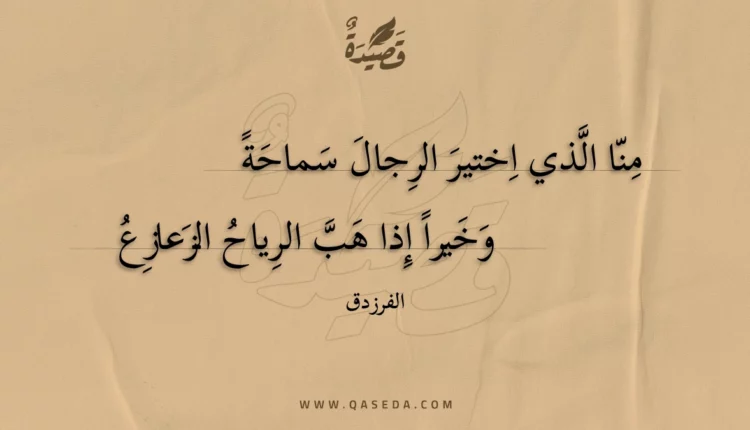 قَصِيْدَةٌ
مِنّا الَّذي اِختيرَ الرِجالَ سَماحَةً
وَخَيراً إِذا هَبَّ الرِياحُ الزَعازِعُ
الفرزدق
WWW.QASEDA.COM